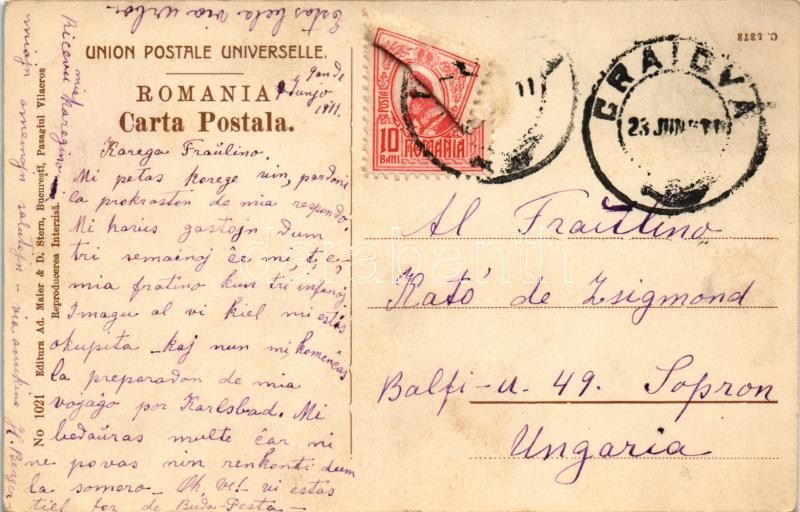 Estas bela via urbo.
C. 1373
UNION POSTALE UNIVERSELLE.
ROMANIA
Carta Postala.
Junjo
1911.
Karega Fraŭlino,
Mi petas korege vin, pardoni
la prokraston de mia respondo
Mi havis gastojn dum
tri semainoj ĉe mi, t, e,
mia fratino kun tri infanoj
Imagu al vi kiel mi estis
okupita – kaj nun mi komencas
la preparadon de mia
vojaĝo por Karlsbad. Mi
bedaŭras multe ĉar ni
ne povas nin renkonti dum
la somero – Oh, ve! vi estas
tiel for de Buda-Pesta –
POSTA
10
BANI
ROMANIA
11
CRAIOVA
23 JUN
Al Fraŭlino
Kató de Zsigmond
Balfi-u. 49. Sopron
Ungaria
No 1021 Editura Ad. Maier & D. Stern, Bucuresti, Pasagiul Vilacros
Reproducerea Interzisă.
Ricevu mia
karegino
miajn amemajn salutojn – via amikino
H. Berger
darabanth